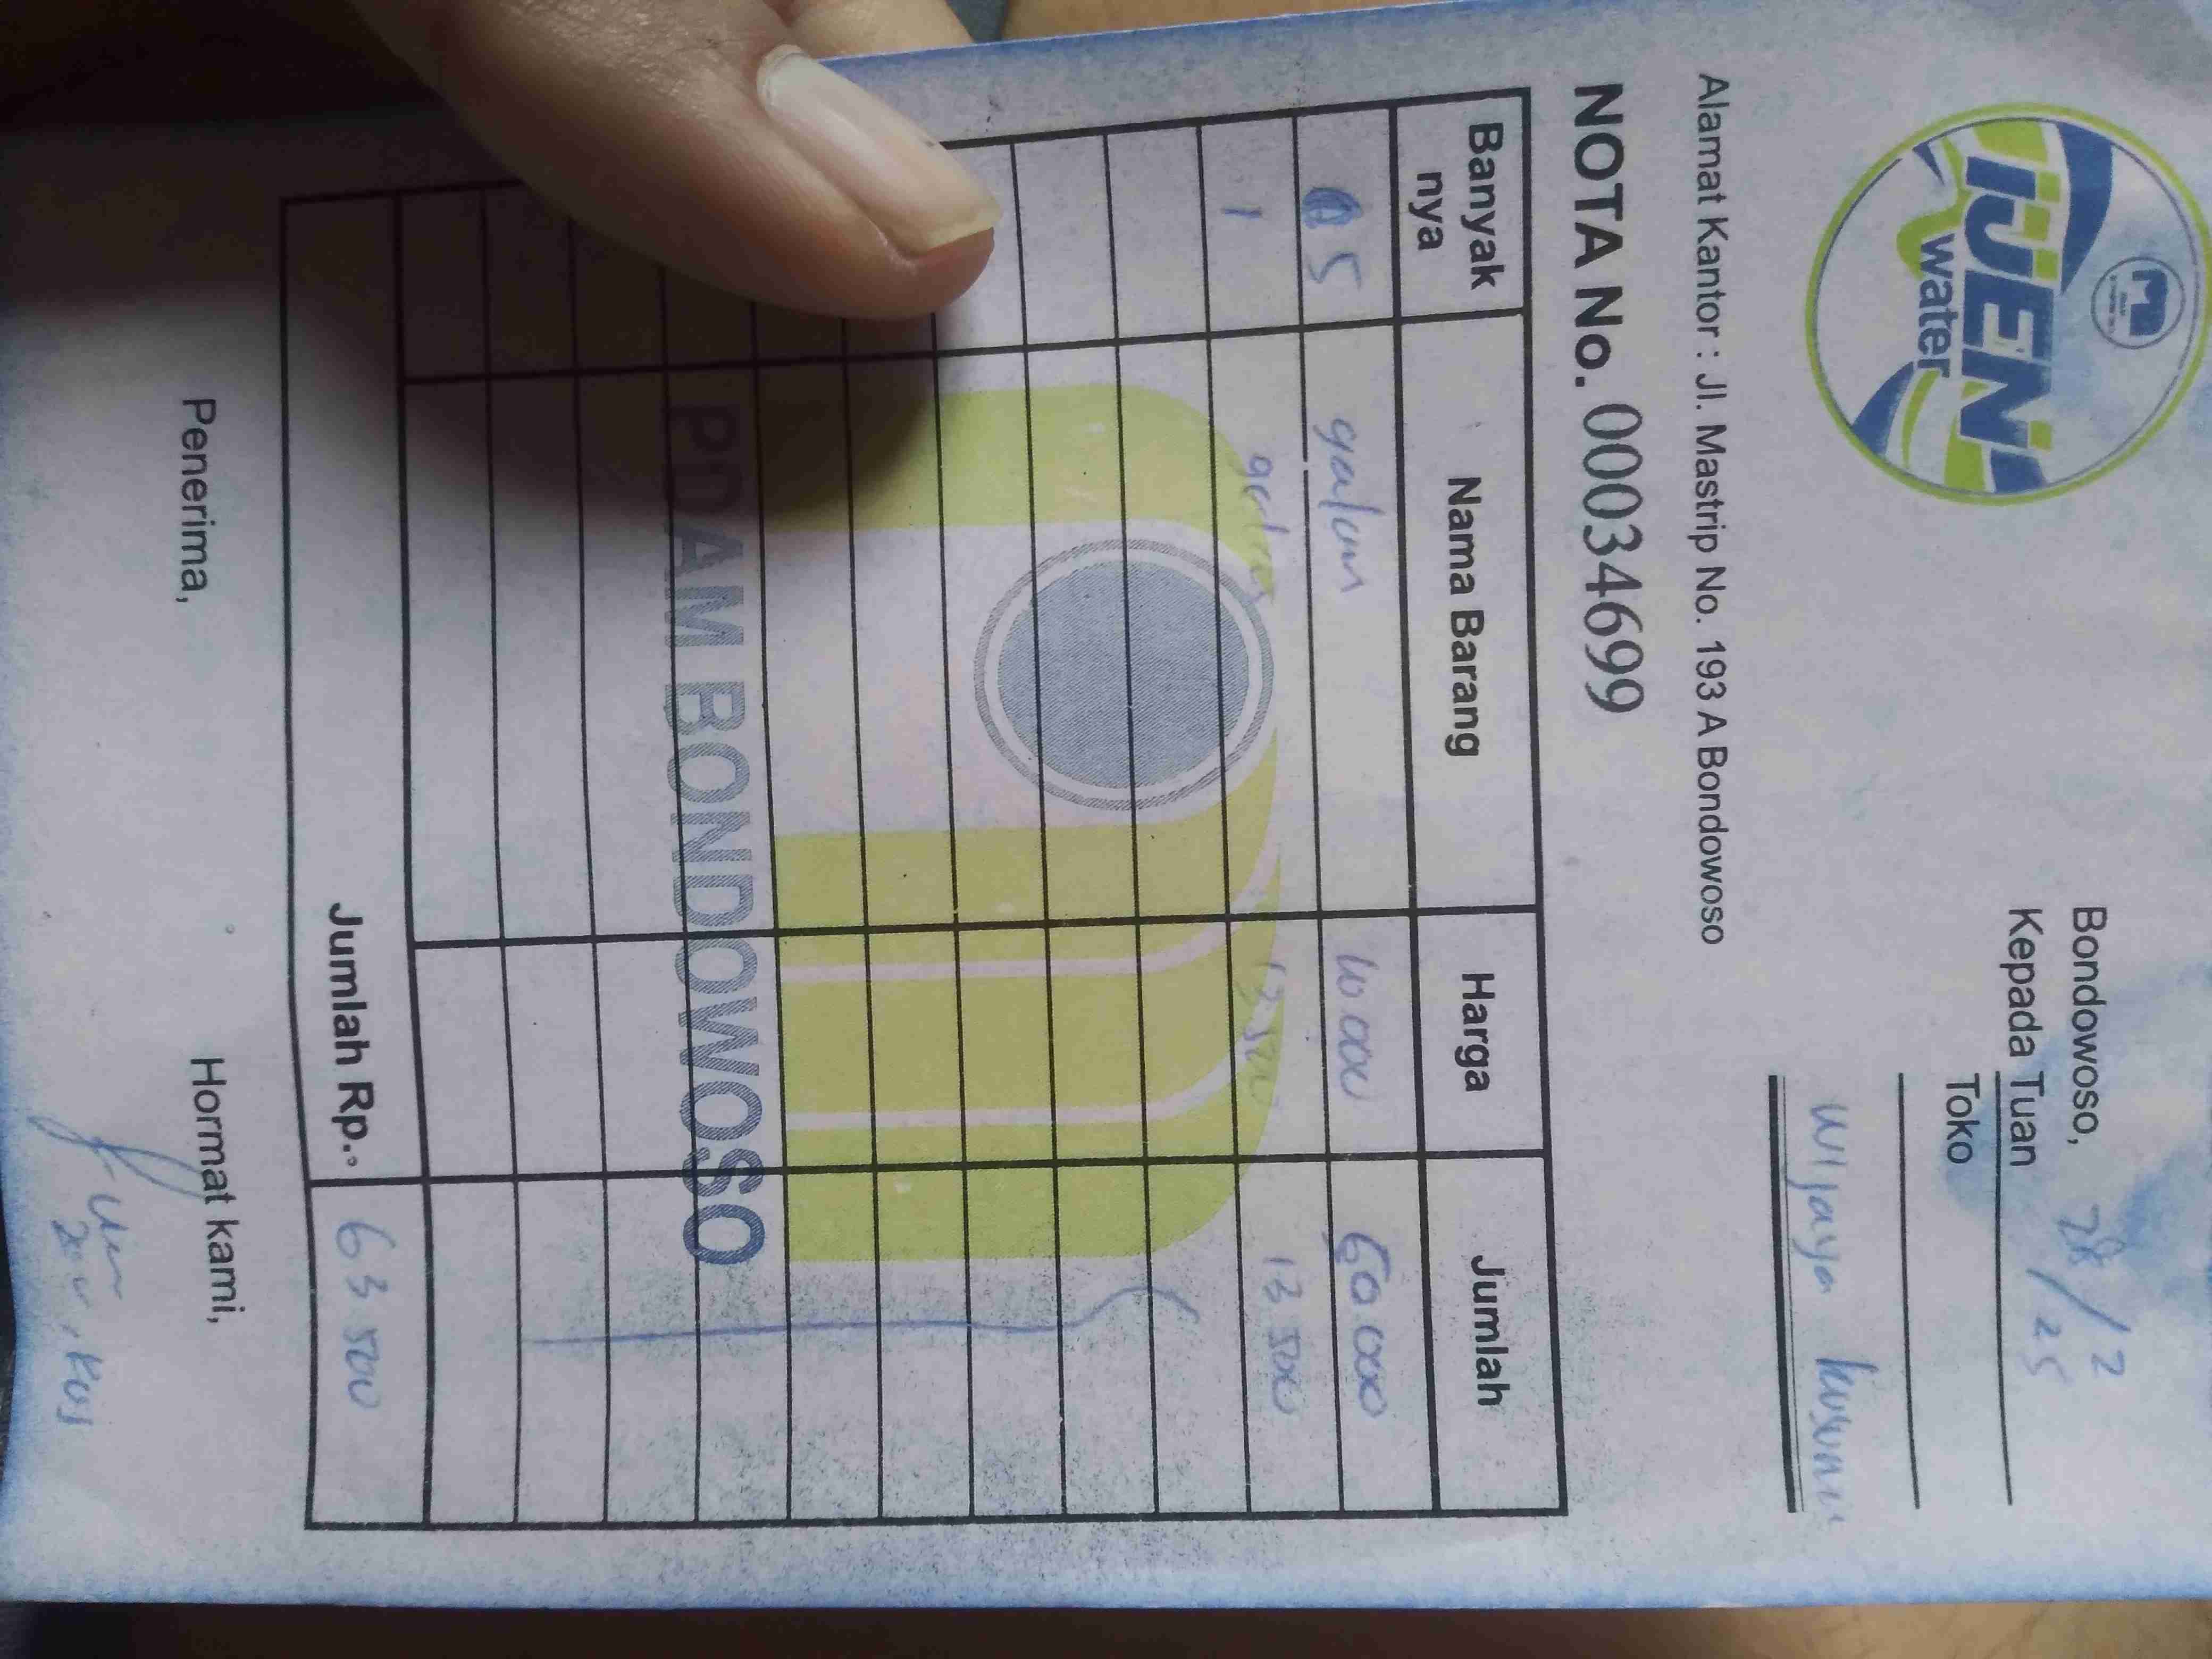 IJEN
water
Bondowoso, 28/2 25
Kepada Tuan
Toko
Wijaya Kusuma
Alamat Kantor : Jl. Mastrip No. 193 A Bondowoso
NOTA No. 00034699
Banyak nya Nama Barang Harga Jumlah
5 galon 10.000 50.000
1 galon 13.500 13.500
PDAM BONDOWOSO
Jumlah Rp. 63 500
Penerima, Hormat kami,